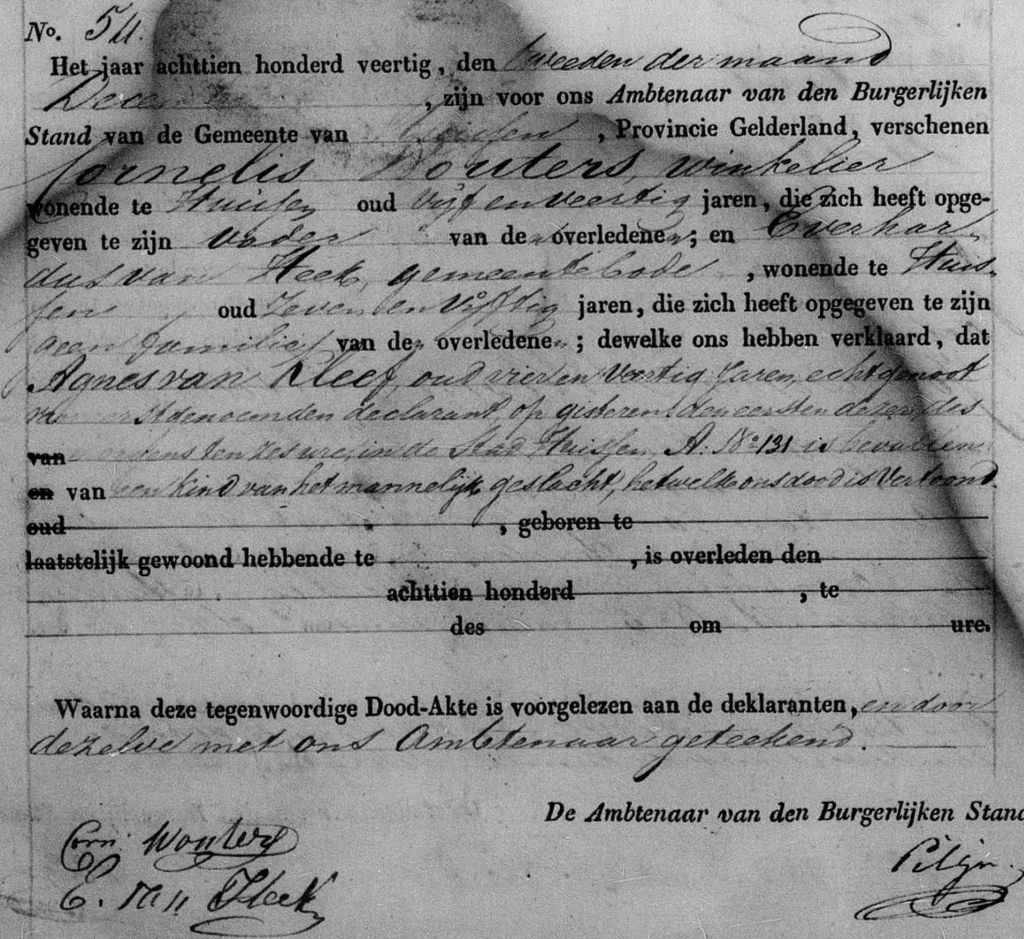 No. 54.
Het jaar achttien honderd veertig, den tweeden der maand
December, zijn voor ons Ambtenaar van den Burgerlijken
Stand van de Gemeente van Huissen, Provincie Gelderland, verschenen
Cornelis Wouters, winkelier
wonende te Huissen oud vijf en veertig jaren, die zich heeft opge-
geven te zijn vader van de overledene; en Everhar-
dus van Heek, gemeente bode, wonende te Huis-
sen, oud zeven en vijftig jaren, die zich heeft opgegeven te zijn
geen familie van de overledene; dewelke ons hebben verklaard, dat
Agnes van Kleef, oud vier en veertig jaren, echtgenoot
van eerstgenoemden declarant, op gisteren den eersten dezer des
van morgens ten zes ure, in de Stad Huissen A. No 131 is bevallen
en van een kind van het mannelijk geslacht, hetwelk ons dood is vertoond.
oud, geboren te
laatstelijk gewoond hebbende te, is overleden den
achttien honderd, te
des om ure.
Waarna deze tegenwoordige Dood-Akte is voorgelezen aan de deklaranten, en door
dezelve met ons Ambtenaar geteekend.
De Ambtenaar van den Burgerlijken Stand
Corn: Wouters
E. van Heek